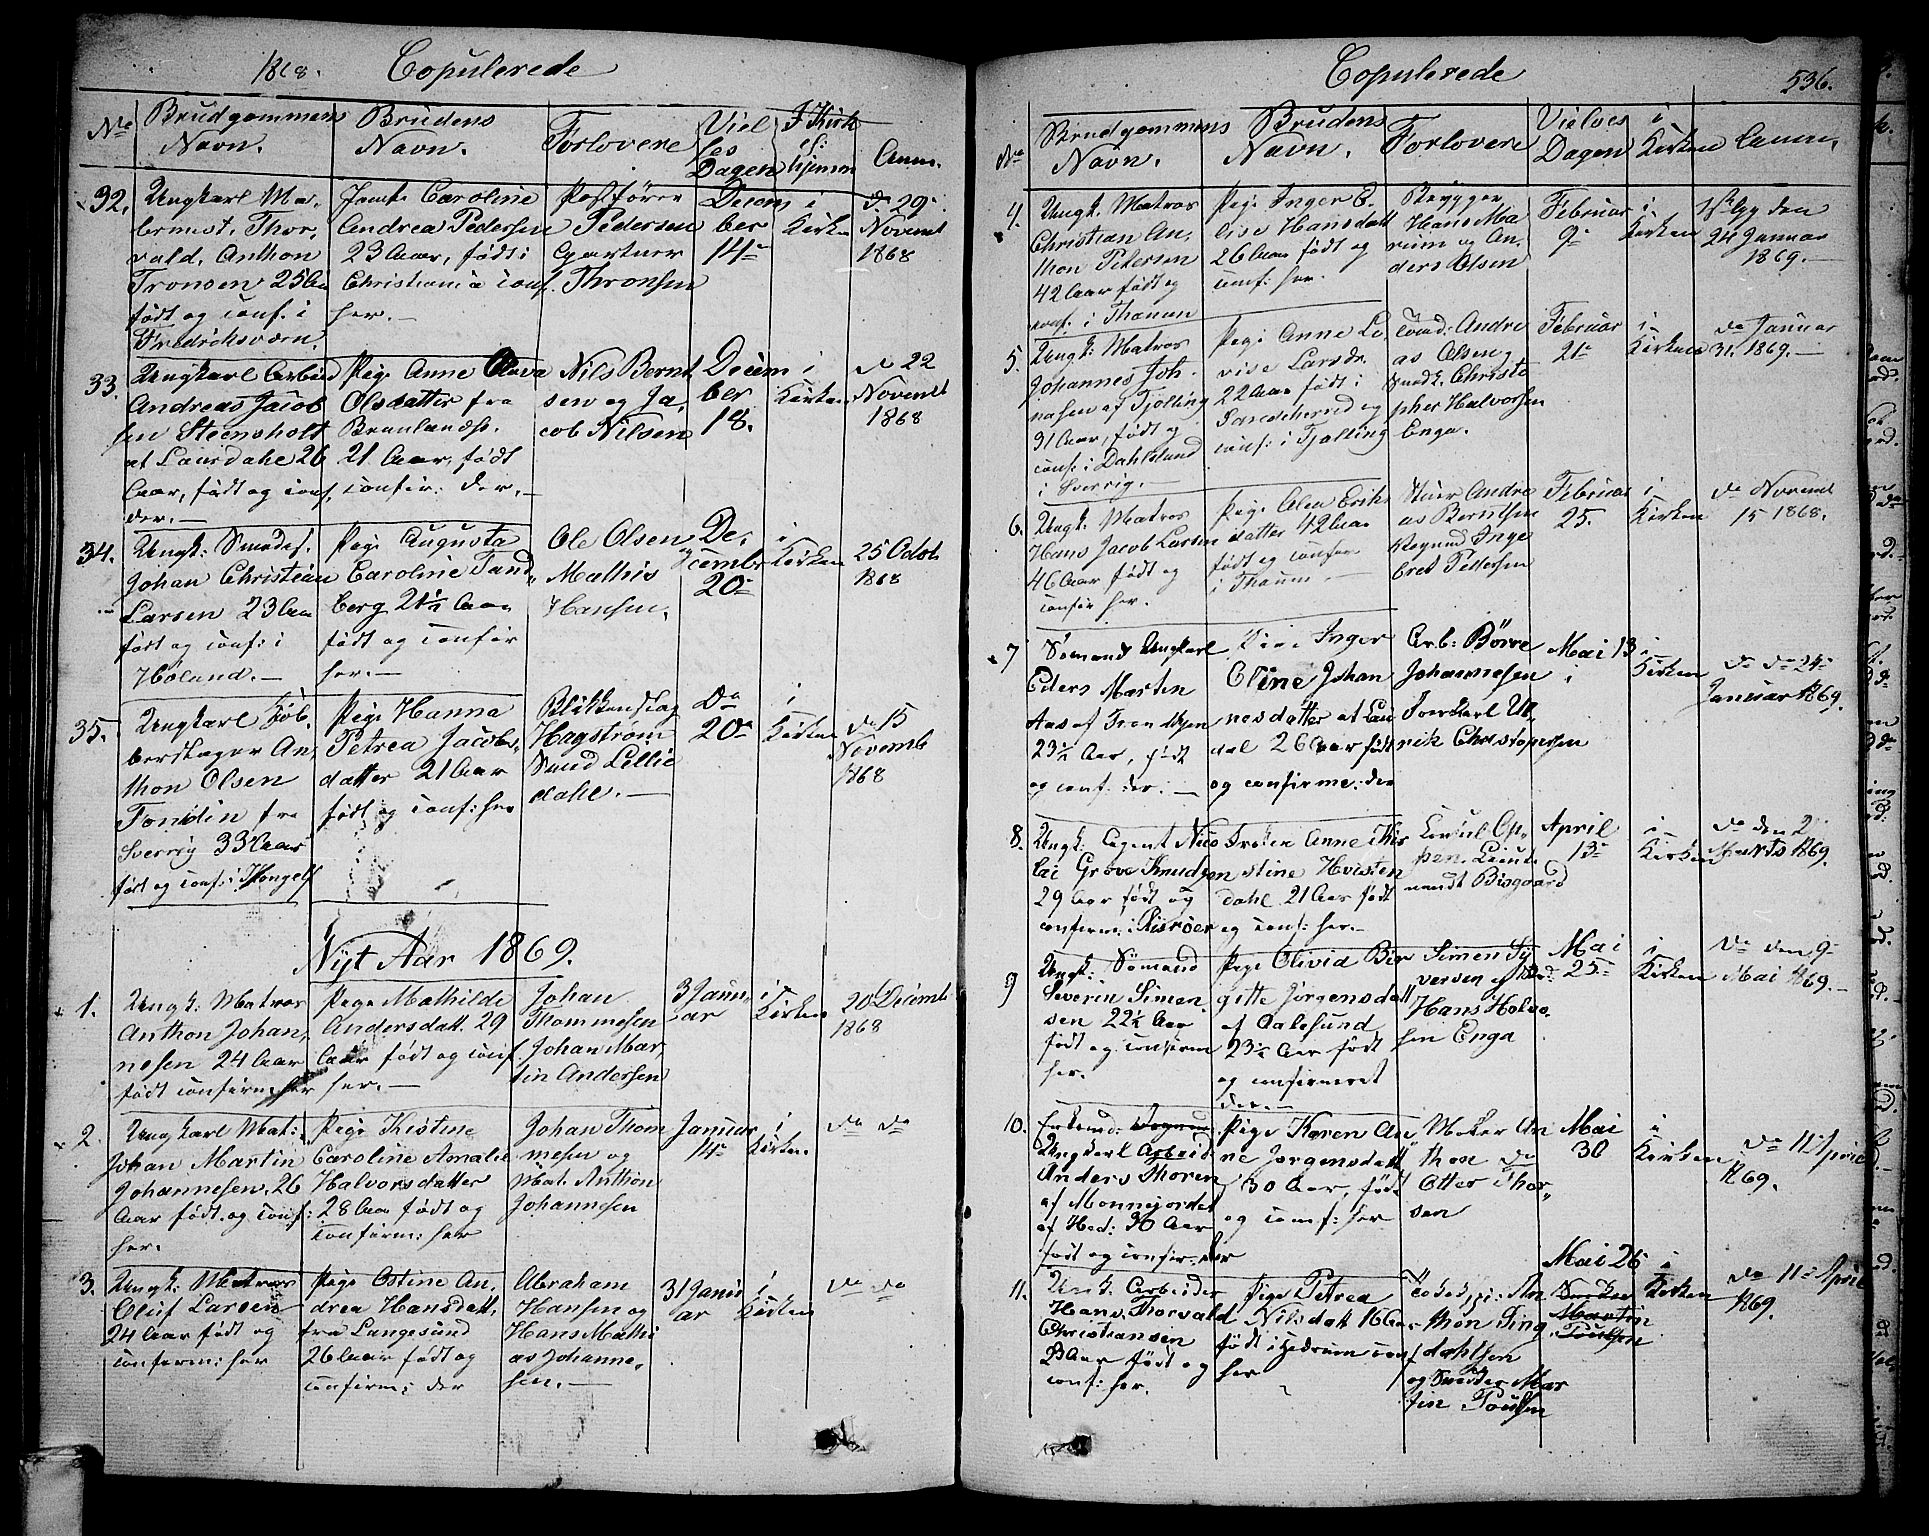 1868. Copulerede
No
Brudgommens
Navn.
Brudens
Navn.
Forlovere
Viel
ses
Dagen
I Kirk
el:
hjemm
Anm.
32.
Ungkarl Ma-
Thor-
vald, Anthon
Tronsen 25 Aar
født og conf. i
Fredriksværn.
Jomf. Caroline
Andrea Pedersen
23 Aar, født i
Christiania conf.
her.
Postfører
Pedersen
Gartner
Thronsen
Decem
ber
14de
i
Kirken
d. 29
Novemb
1868
33.
Ungkarl Arbeid
Andreas Jacob
sen Steensholt
af Laurdahl 26
Aar, født og conf.
der.
Pige Anne Olava
Olsdatter fra
21 Aar, født
confir. der.
Nils Bernt
sen og Ja-
cob Nilsen
Decem
ber
18.
i
Kirken
d 22
Novemb
1868
34.
Ungk: Smedes.
Johan Christian
Larsen 23 Aar
født og conf: i
Høland.
Pige Augusta
Caroline Tand
berg 21½ Aar
født og confir
her.
Ole Olsen
Mathis
Hansen.
De-
cembr
20de
i
Kirken
25 Octob
1868
35.
Ungkarl Kob-
berslager An-
thon Olsen
Fondin fra
Sverrig 33 Aar
født og conf: i Kongelf
Pige Hanna
Petrea Jacobs-
datter 21 Aar
født og conf: her
Blikkenslag
Hagstrøm
Smed Lillie
dahl.
Do
20de
i
Kirken
do 15
Novemb
1868
Nyt Aar 1869.
1.
Ungk: Matros
Anthon Johan-
nesen 24 Aar
født confirm: her
Pige Mathilde
Andersdatt. 29
Aar født og conf
her.
Johan
Thommesen
Johan Mar-
tin Andersen
3 Janu-
ar
i
Kirken
20 Decemb
1868
2.
Ungkarl Mat:
Johan Martin
Johannesen, 26
Aar født og conf:
her.
Pige Kistine
Caroline Amalie
Halvorsdatter
28 Aar født og
confirm: her
Johan Thom
mesen og
Mat. Anthon
Johannesen
Januar
14de
i
Kirken
do do
3.
Ungk: Matros
Oluf Larsen
24 Aar født og
confirm: her
Pige Ostine An-
drea Hansdatt.
fra Langesund
26 Aar født og
confirm: der
Abraham
Hansen og
Hans Mathi
as Johanne-
sen.
31 Janu
ar
i
Kirken
do do
Copulerede
536.
No
Brudgommens
Navn.
Brudens
Navn.
Forlovere
Vielses
Dagen
i
Kirken
Anm.
4.
Ungk. Matros
Christian An-
thon Petersen
42 Aar født og
conf. i Thanum
Pige Inger E-
lise Hansdatt
26 Aar født og
conf: her.
Brygger
Hans Ma
rum og An-
ders Olsen
Februar
9de
i
Kirken
den
24 Januar
1869.
5.
Ungk: Matros
Johannes Joh-
nasen af Tjølling
31 Aar, født og
conf: i Dahlslund
i Sverrig.
Pige Anne Lo
vise Larsdr.
22 Aar født i
Sandeherred og
conf: i Tjølling
Tømd: Andre
as Olsen og
Smedk. Christo
pher Halvorsen
Enga.
Februar
21de
i
Kirken
do Januar
31. 1869.
6.
Ungk. Matros
Hans Jacob Larsen
46 Aar født og
confir her.
Pige Alen Eriks
datter 42 Aar
født og confir
i Thanum.
Stuer Andre
as Berntsen
Inge
bret Pettersen
Februar
25.
i
Kirken
do Novemb
15 1868.
7
Sømand Ungkarl
Eders Martin
Aas af
23½ Aar, født
og conf. der.
Pige Inger
Eline Johan
nesdatter af Lau
dal 26 Aar født
og confirme: der
Arb: Børre
Johannesen
Ul-
rik Christopersen
Mai 13
i
i
Kirken
do do 24de
Januar 1869.
8.
Ungk: Agent Nico
lai Grove Knudzen
29 Aar født og
confirm: i Risøer
Frøken Anne Chri
stine Hvisten
dahl 21 Aar født
og conf: her.
Consul Op-
pen. Lieute
nandt Bisgaard
April
13de
i
Kirken
do den 2
Marts 1869.
9
Ungk: Sømand
Severin Simen
sen 22½ Aar
født og confirm
her.
Pige Olivia Bir
gitte Jørgensdatt
af Aalesund
23½ Aar født
og confirmeret
der.
Simen Sy
versen og
Hans Holvo-
sen Enga
Mai
25de
i
Kirken
do den 9de
Mai 1869.
10.
Ungkarl Arbeid
Anders Thoren
af Monnejordet
af Hed: 30 Aar
født og confir. der
Pige Karen An
ne Jørgensdatt
30 Aar, født
og conf: her
An
thon do
Otter Thor-
sen
Mai
30
i
Kirken
do 11 April
1869.
11.
Ungk. Arbeider
Hans Thorvald
Christiansen
23 Aar født og
conf: her.
Pige Petrea
Nilsdatt 16 Aar
født i Hedrum conf
her
An
thon Ling
dahlsen
og Smeden Mar
tin Poulsen
Mai 26
Smeden
Martin
Poulsen
i
Kirken
do 11de April
1869.